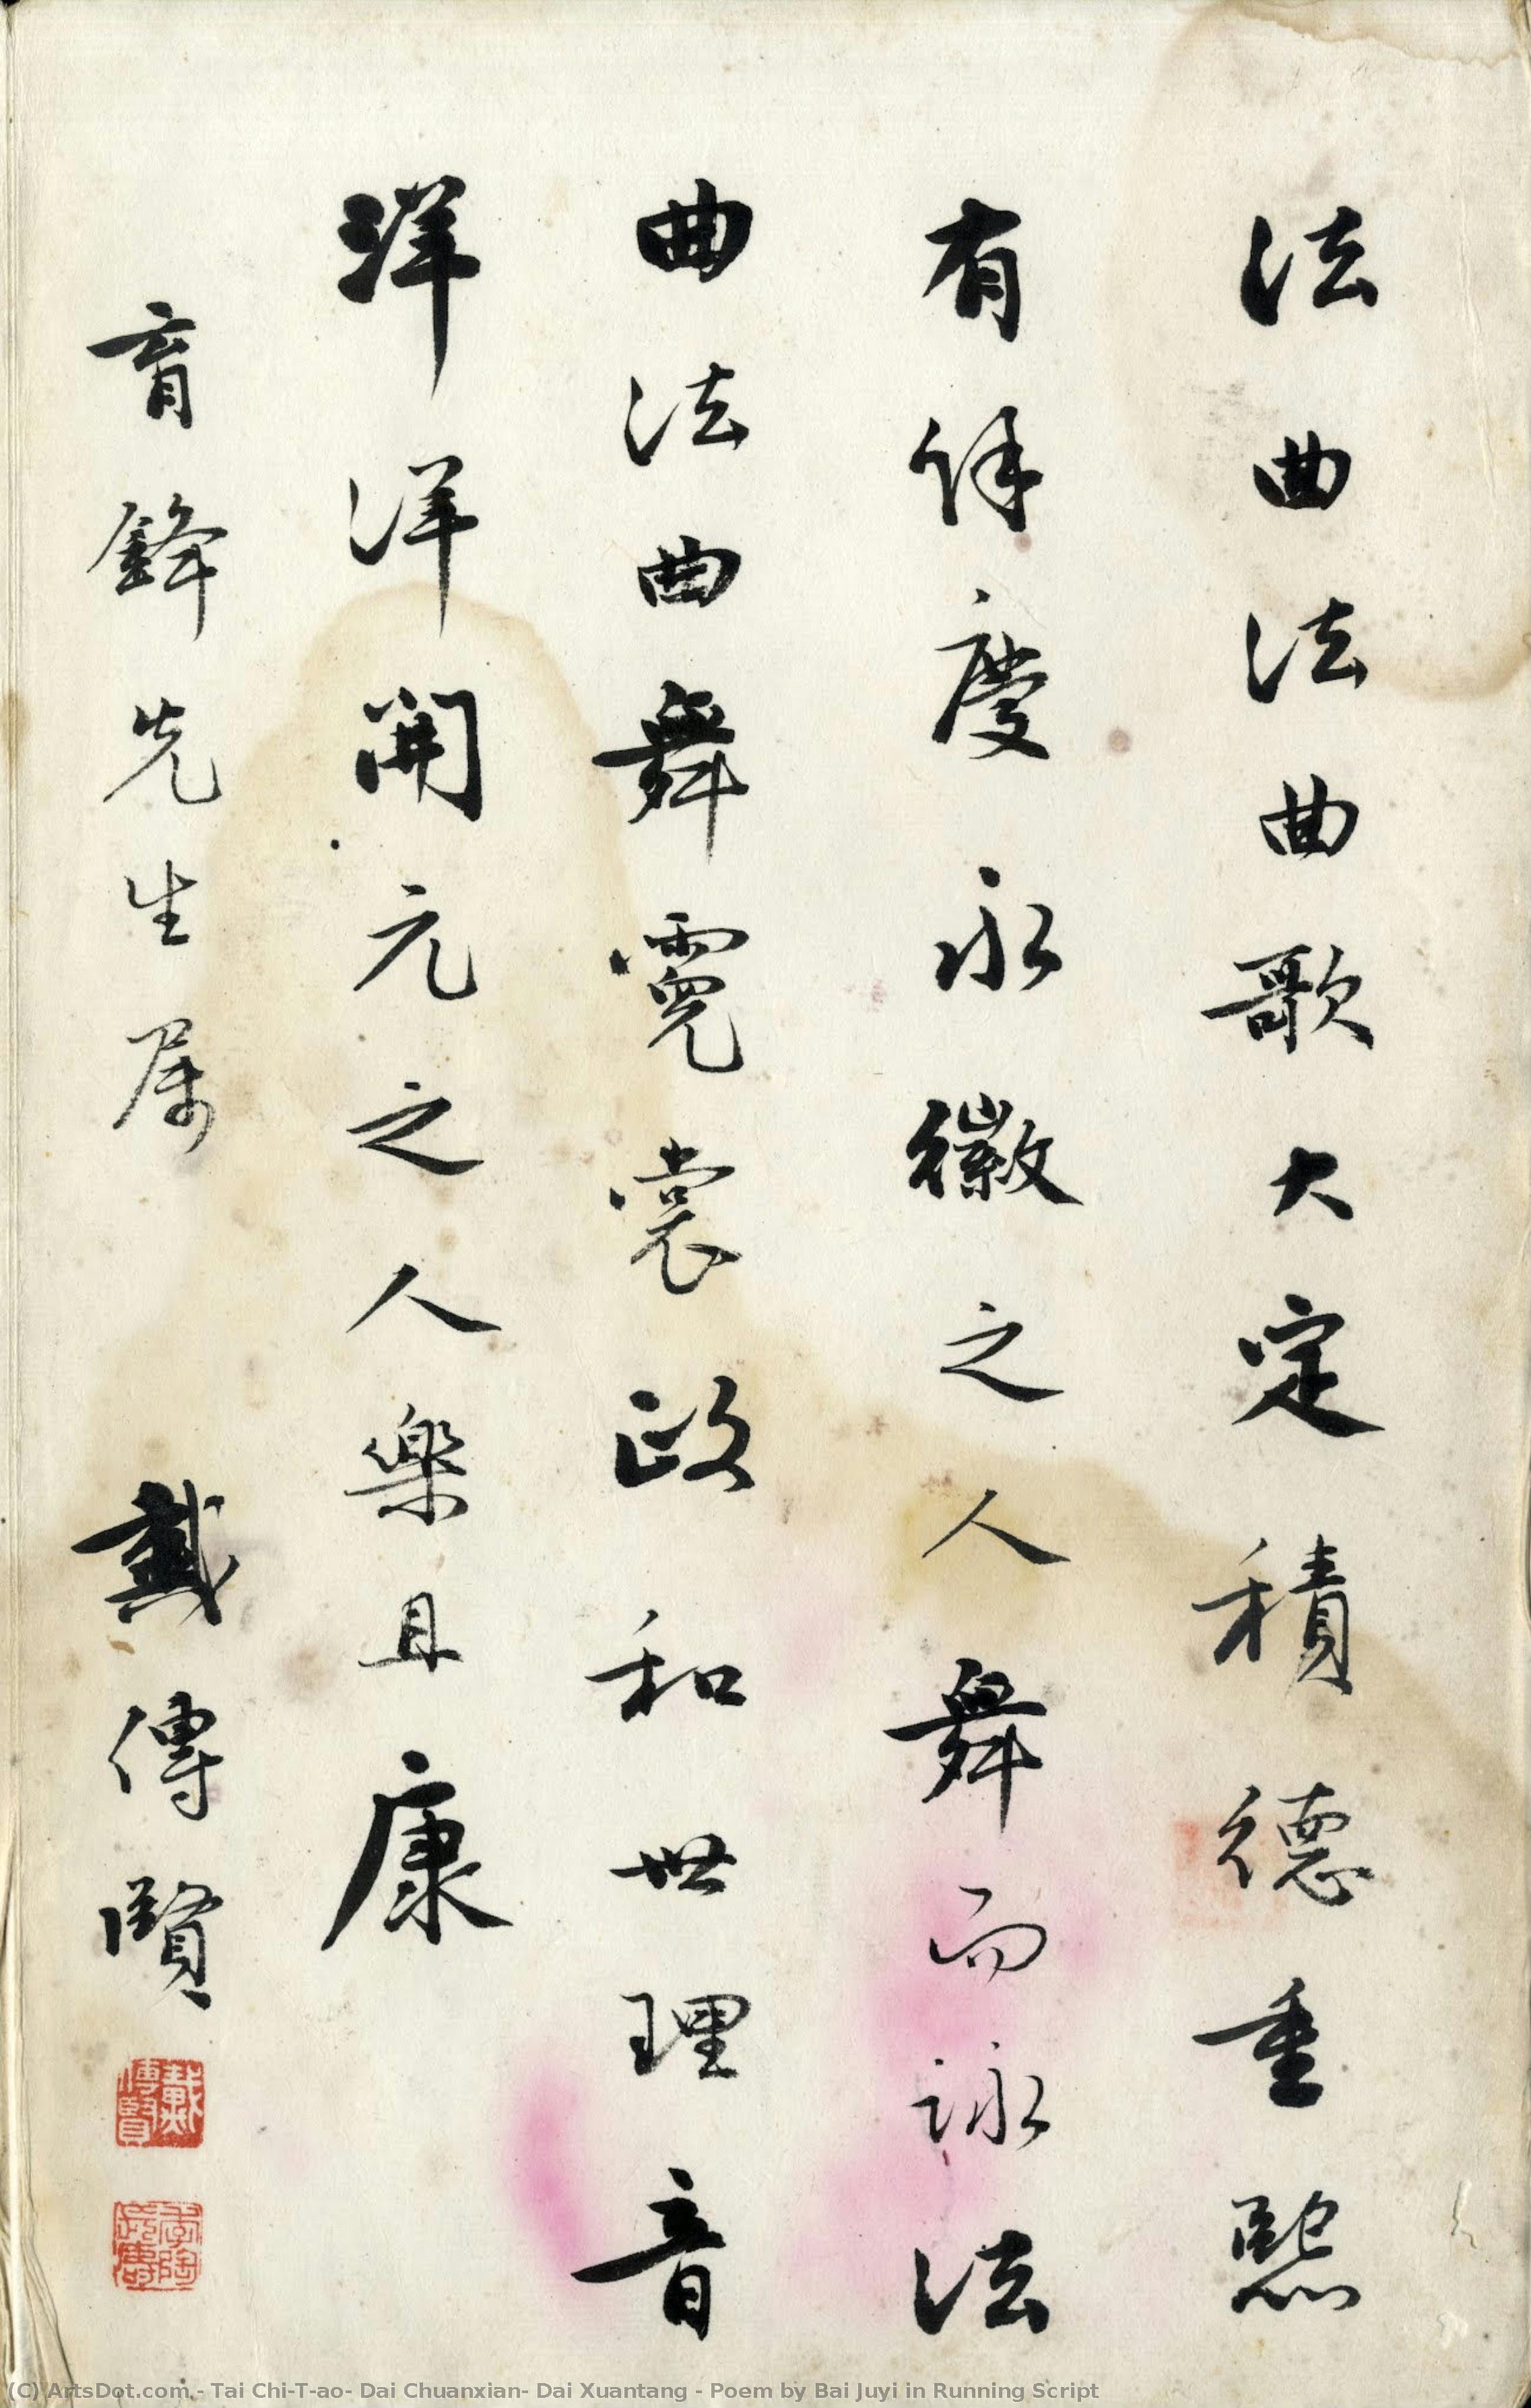 法曲法曲歌大定積德重熙
有余慶永徽之人舞而詠法
曲法曲舞霓裳政和世理音
洋洋開元之人樂且康
育鋒先生属
戴傳賢
戴傳賢
(C) ArtsDot.com - Tai Chi-T-ao- Dai Chuanxian- Dai Xuantang - Poem by Bai Juyi in Running Script